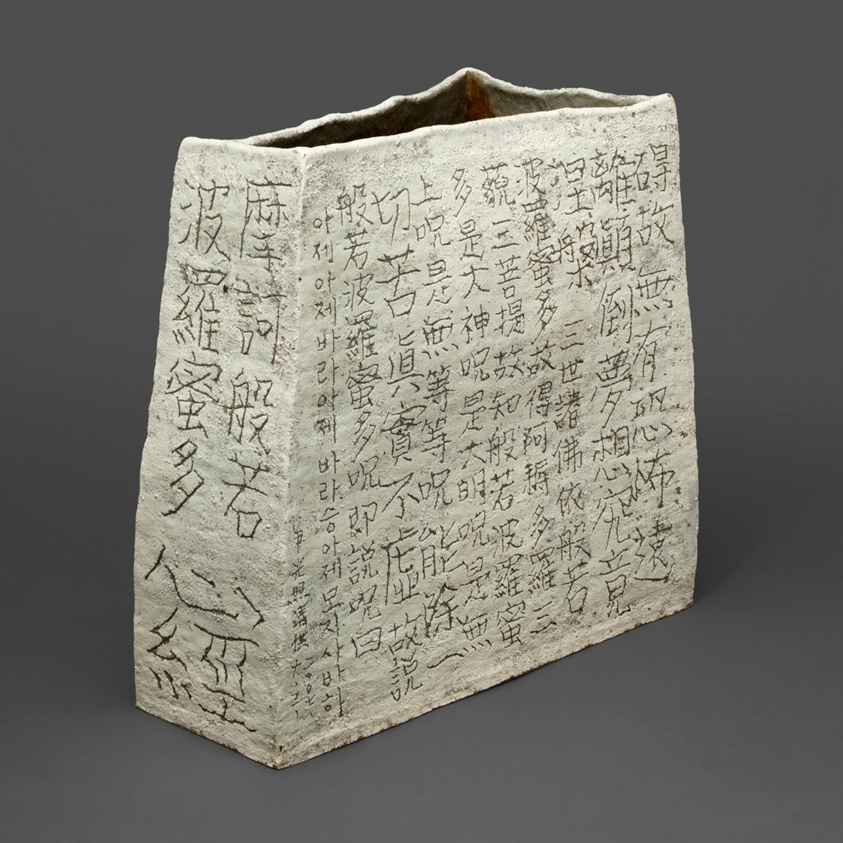 碍故無有恐怖遠
離顚倒夢想究竟
涅槃三世諸佛依般若
波羅蜜多故得阿耨多羅三
藐三菩提故知般若波羅蜜
多是大神呪是大明呪是無
上呪是無等等呪能除一
切苦眞實不虛故說
般若波羅蜜多呪即說呪曰
아제아제바라아제바라승아제모지사바하
尹光照
摩訶般若
波羅蜜多
心經